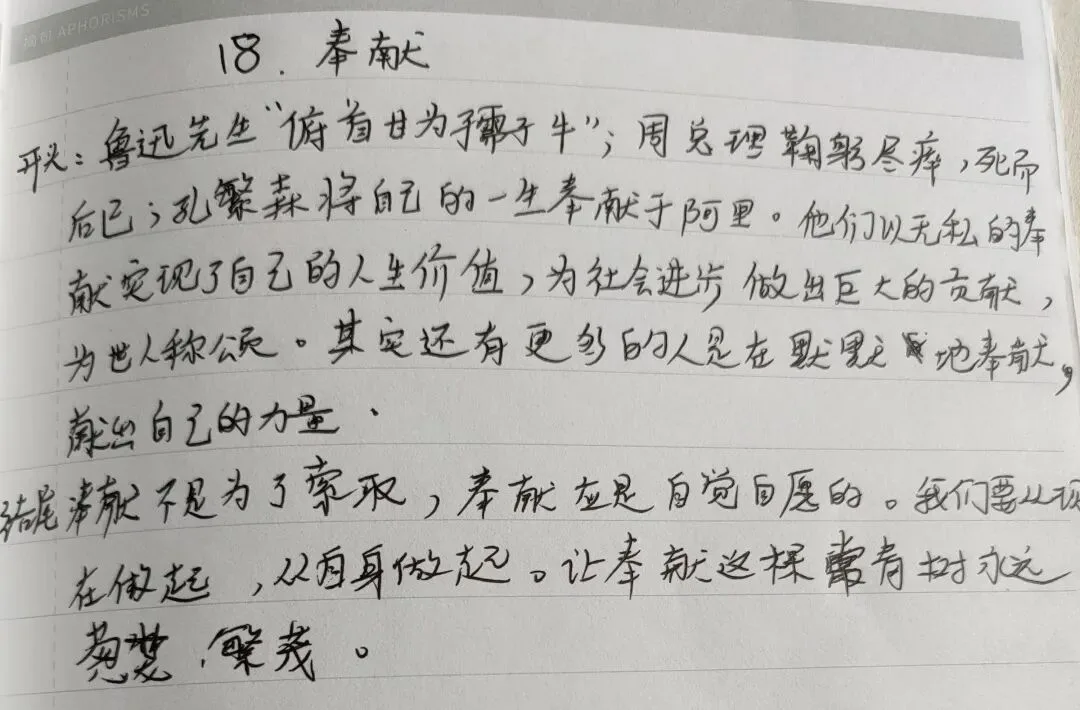 摘创 APHORISMS
18. 奉献
开头：鲁迅先生“俯首甘为孺子牛”；周总理鞠躬尽瘁，死而
后已；孔繁森将自己的一生奉献于阿里。他们以无私的奉
献实现了自己的人生价值，为社会进步做出巨大的贡献，
为世人称颂。其实还有更多的人是在默默地奉献，
献出自己的力量.
结尾奉献不是为了索取，奉献应是自觉自愿的。我们要从现
在做起，从自身做起。让奉献这棵常青树永远
繁茂。